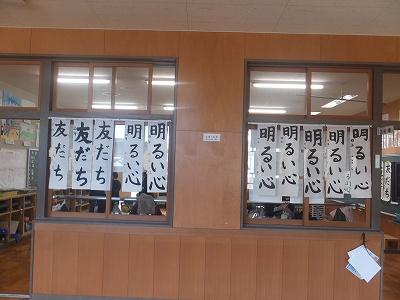 友だち
友だち
友だち
明るい心
明るい心
明るい心
明るい心
明るい心
明るい心
明るい心
明るい心
友だち